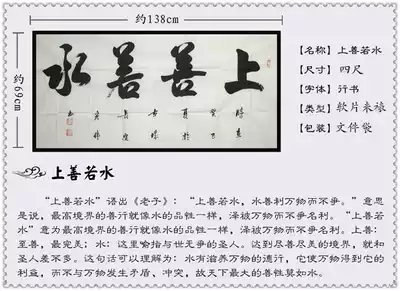 约138cm
约69cm
上善若水
【名称】上善若水
【尺寸】四尺
【字体】行书
【类型】软片未裱
【包装】文件袋
上善若水
“上善若水”语出《老子》：“上善若水，水善利万物而不争。”意思
是说，最高境界的善行就像水的品性一样，泽被万物而不争名利。“上善若
水”意为最高境界的善行就像水的品性一样，泽被万物而不争名利。上善：
至善，最完美；水：这里喻指与世无争的圣人。达到尽善尽美的境界，就和
圣人差不多。这句话可以理解为：水有滋养万物的德行，它使万物得到它的
利益，而不与万物发生矛盾、冲突，故天下最大的善性莫如水。